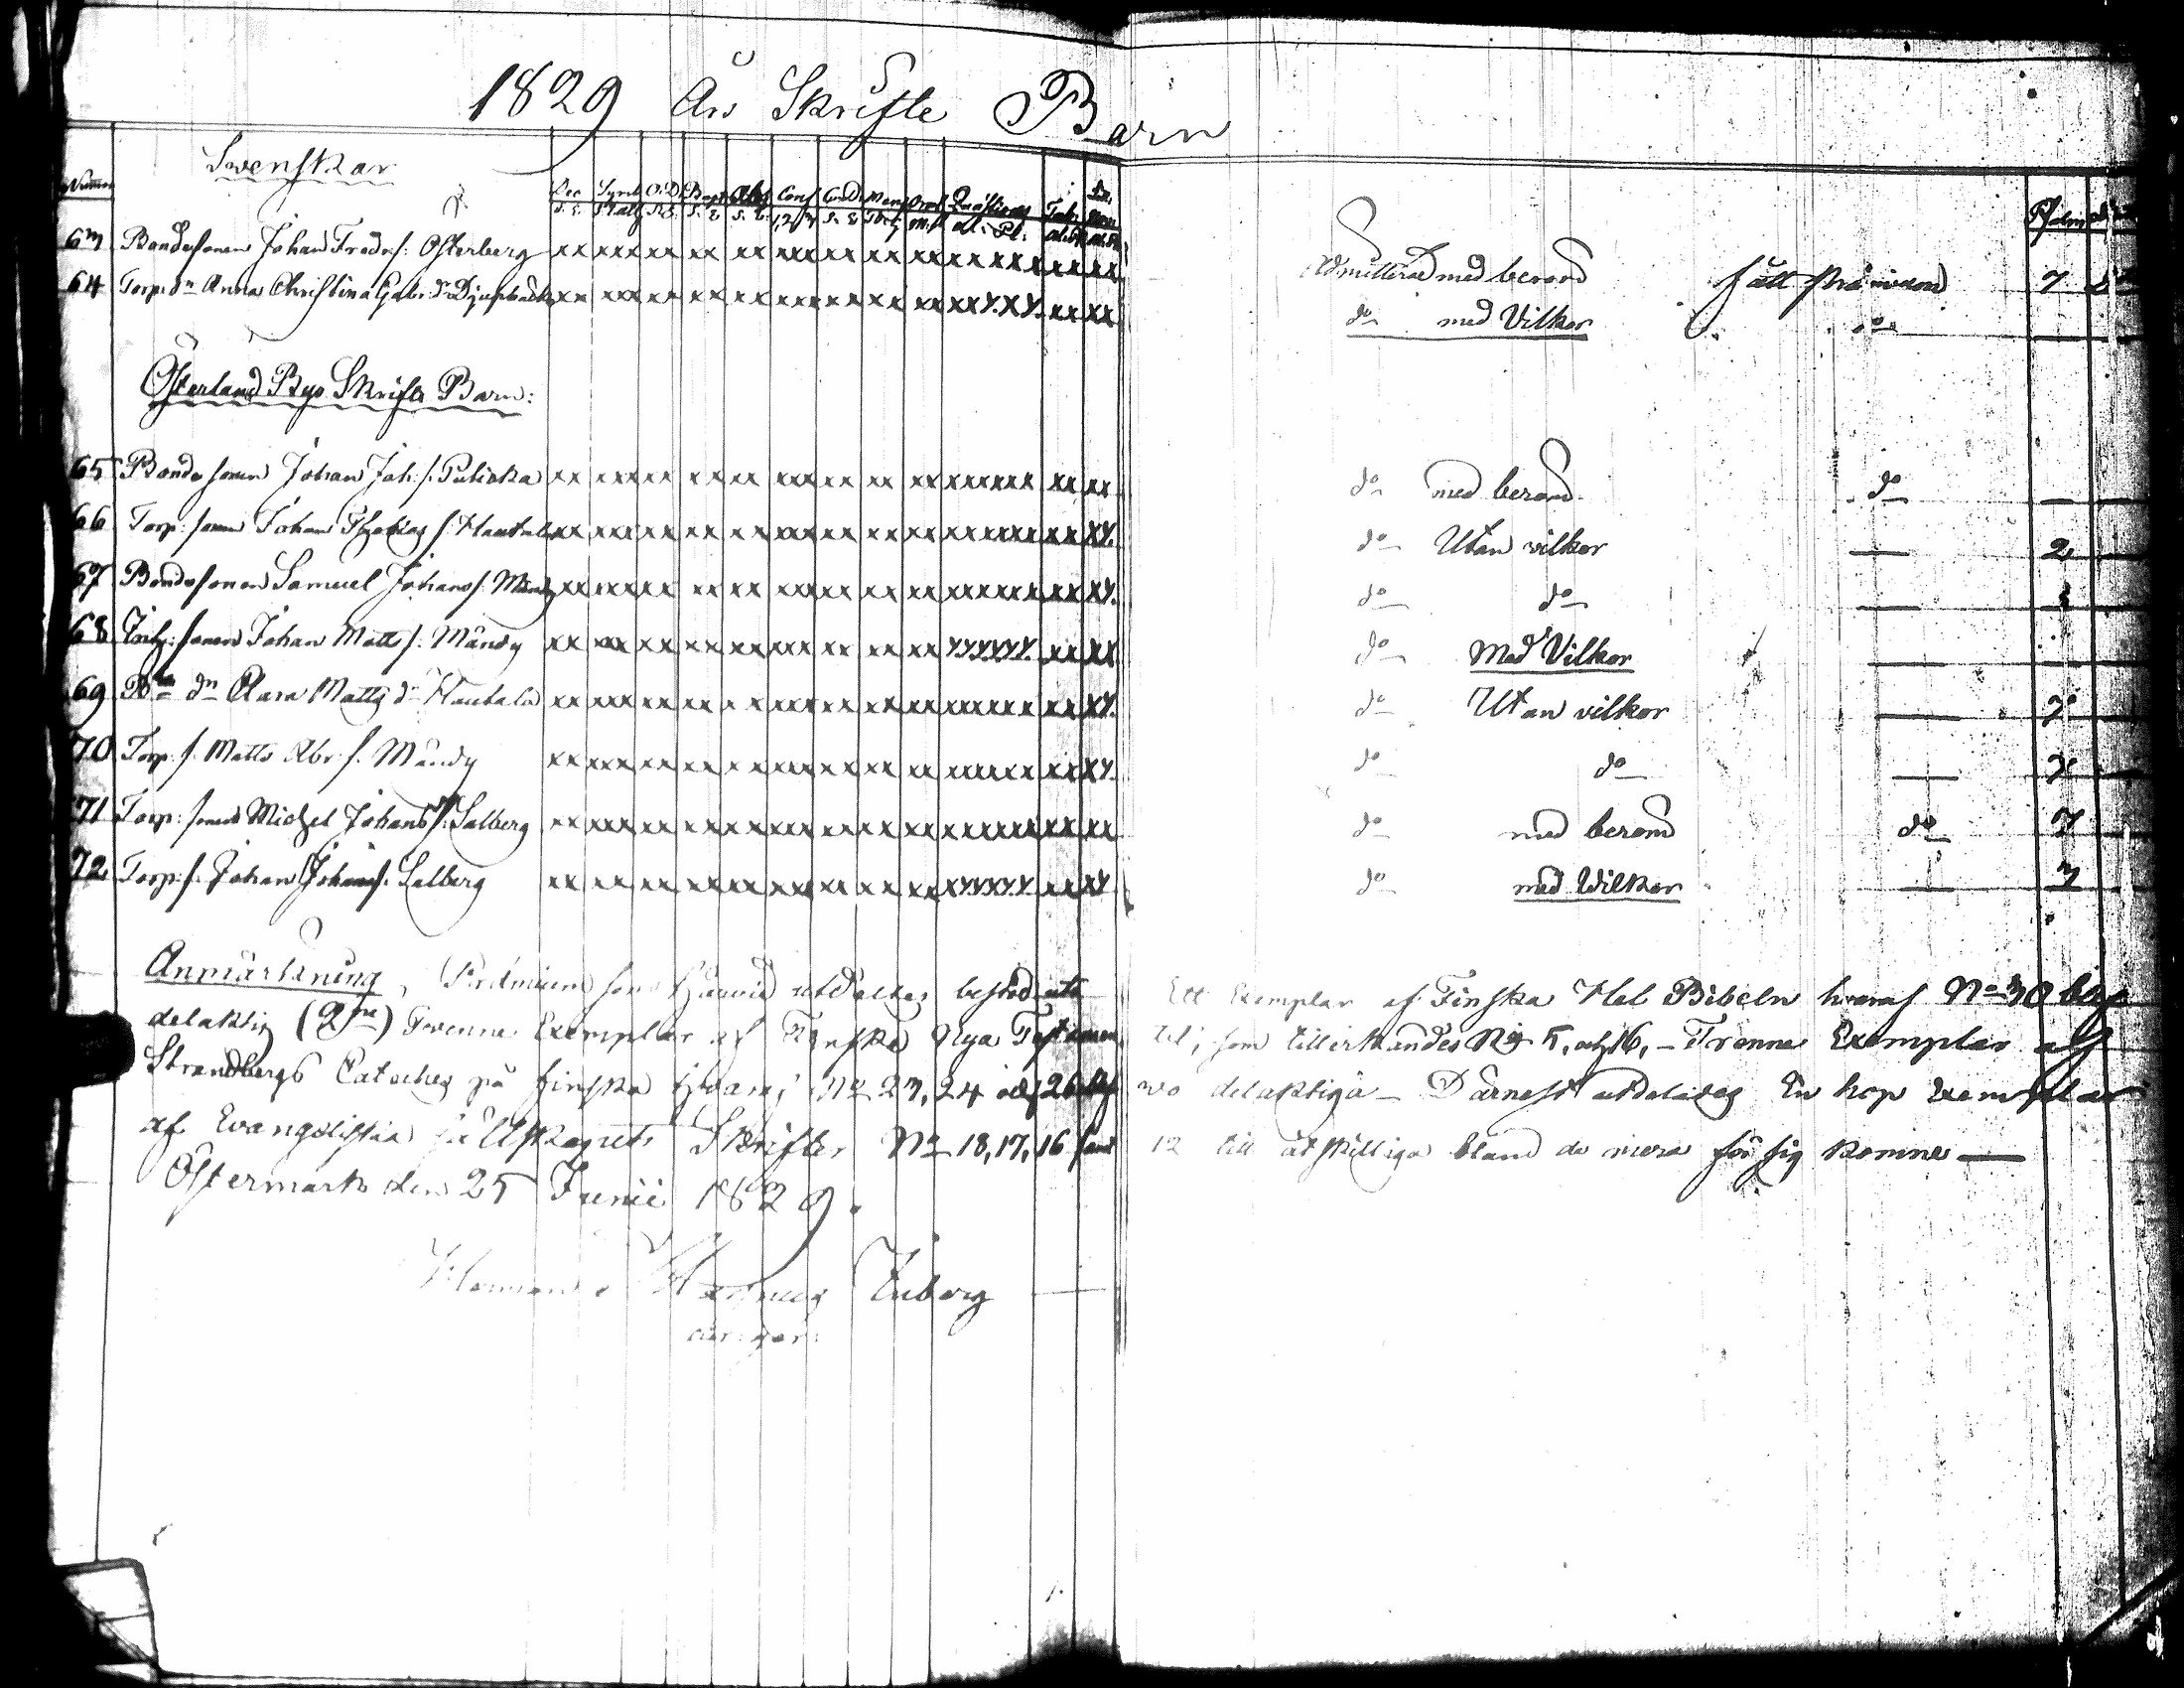 1829 Års Skrifte Barn
Svenskar
Numro Dec Symb O.D. Bapt Abs Conf Coen.D. Mens Orat Quæstiones Tab. Psalm
63 Bondesonen Johan Fredr.s: Österberg xx xxx xx xx xx xxx xx xx xx xx xx xx xx xx Admitterad med beröm fått præmium 7
64 Torp: dr Anna Christina Gabr: dr Djupsbacka xx xxx xx xx xx xxx xx xx xx xxy.xy. xx xx do med Vilkor do
Österland Bys Skrifte Barn:
65 Bonde sonen Johan Joh: s. xx xxx xx xx xx xxx xx xx xx xxxxxx xx xx do med beröm do —
66 Torp: sonen Johan s. Hautala xx xxx xx xx xx xxx xx xx xx xxxxxx xx xy. do Utan vilkor — 2
67 Bondesonen Samuel Johans s. Mändy xx xxx xx xx xx xxx xx xx xx xxxxxx xx xy. do do —
68 sonen Johan Matts s: Mändy xx xxx xx xx xx xxx xx xx xx yyyyyy. xx xx do Med Vilkor —
69 dr Clara Matts dr Hautala xx xxx xx xx xx xxx xx xx xx xxxxxx xx xy. do Utan vilkor — 7
70 Torp: s. Matts Abr: s. Mändy xx xxx xx xx xx xxx xx xx xx xxxxxx xx xy. do do — 7
71 Torp: sonen Michel Johans s: Salberg xx xxx xx xx xx xxx xx xx xx xxxxxx xx xx do med beröm do 7
72 Torp: s. Johan Johans s. Salberg xx xx xx xx xx xxx xx xx xx xyyxyy. xx xy do med Wilkor — 7
Anmärkning, Præmium som utdeltes bestod uti Ett Exemplar af Finska Hel Bibeln hvaraf No 30 blef
delaktig (2ne) Tvenne Exemplar af Finska Nya Testamentet, som tillerkändes No 5, och 16, – Trenne Exemplar af
Strandbergs Cateches på finska hvaraf No 23, 24 och 26 blefvo delaktiga – Därnäst utdelades En hop Exemplar
af Evangeliska Skrifter No 18, 17, 16 samt 12 till åtskilliga bland de mera för sig komne —
Östermark den 25 Junii 1829.
Herman Magnus Enberg